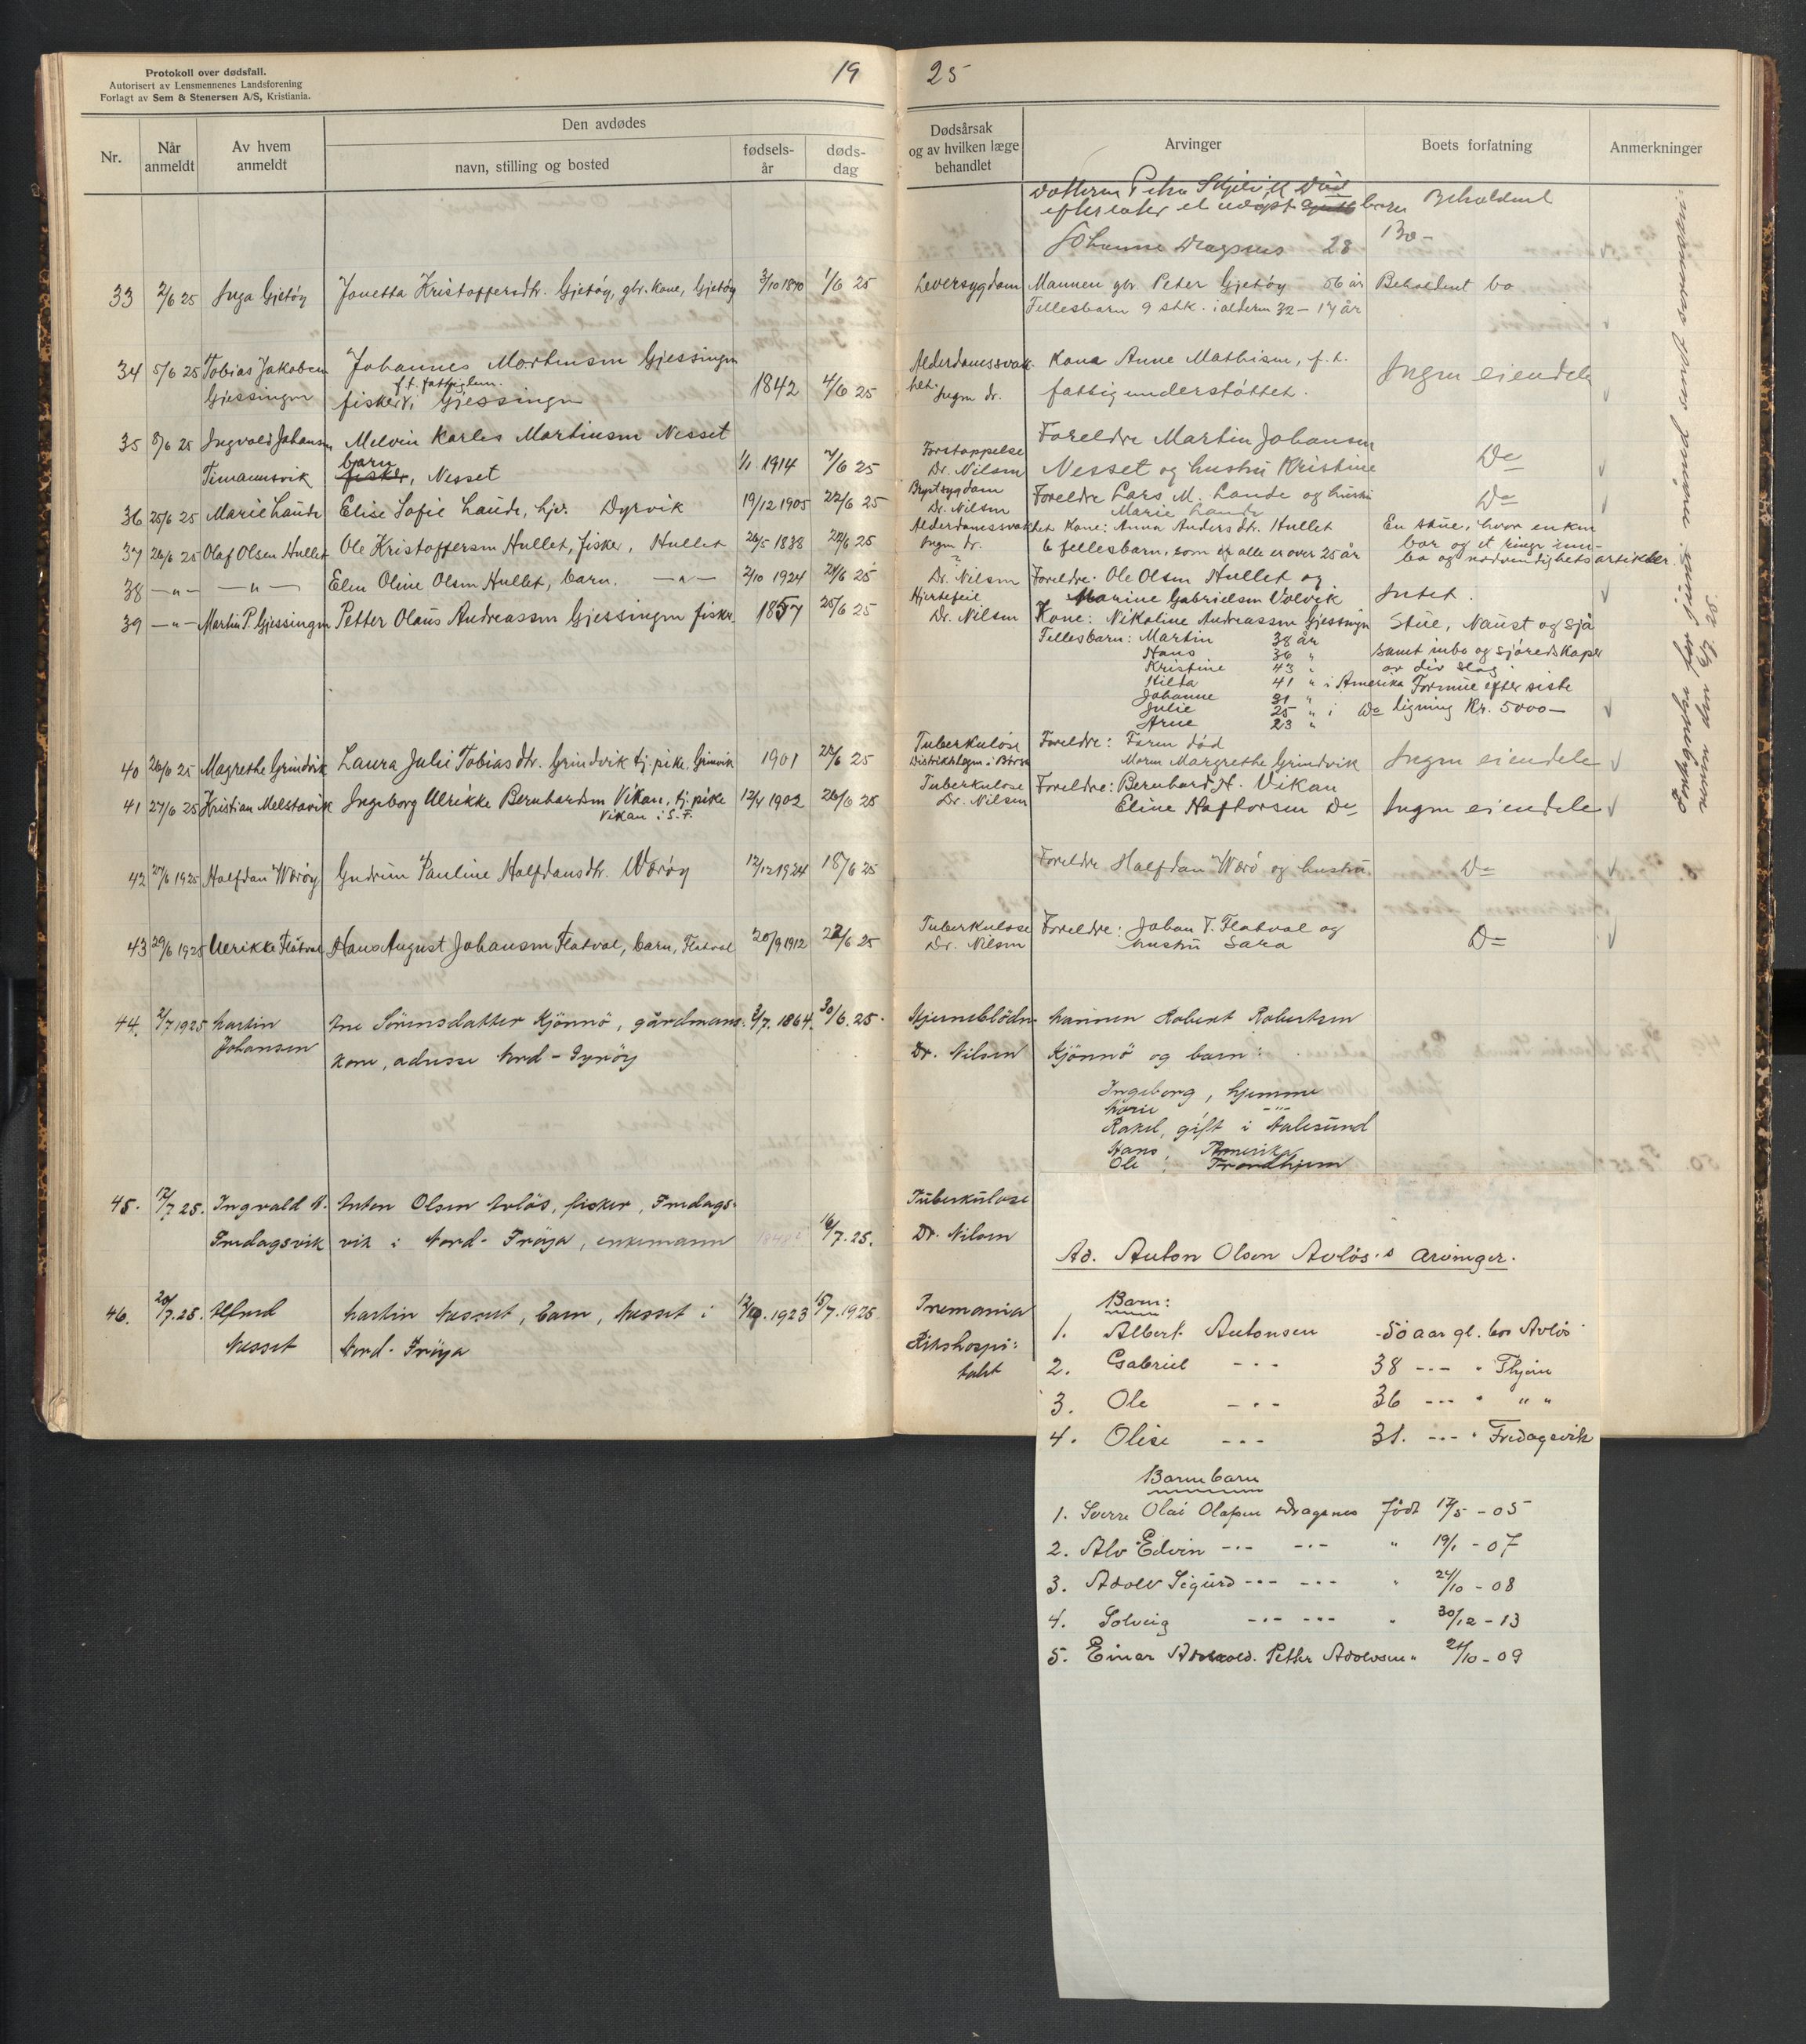 Protokoll over dødsfall.
Autorisert av Lensmennenes Landsforening
Forlagt av Sem & Stenersen A/S, Kristiania.
19 25
Nr.
Når anmeldt
Av hvem anmeldt
Den avdødes
navn, stilling og bosted
fødsels-år
døds-dag
Dødsårsak og av hvilken læge behandlet
Arvinger
Boets forfatning
Anmerkninger
Datteren Petra død Beholdent
efterlater et barn
Johanne Dragsnes 28 Bo-
33 2/6 25 Inga Gjetøy Jonetta Kristoffersdtr. Gjetøy, gbr. kone, Gjetøy 3/10 1870 1/6 25 Leversygdom Mannen gbr. Peter Gjetøy 56 år Beholdent bo
Fellesbarn 9 stk. i alderen 32 - 17 år
34 5/6 25 Tobias Jakobsen Johannes Mortensen Gjessingen Alderdomssvak- Kona Anne Mathisen, f. t. Ingen eiendele
f.t. fattiglem.
Gjessingen fisker, Gjessingen 1842 4/6 25 het. Ingen dr. fattigunderstøttet.
35 8/6 25 Ingvald Johansen Melvin Karles Martinsen Nesset Foreldre Martin Johansen
barn
Timannsvik fisker, Nesset 1/1 1914 7/6 25 Forstoppelse Dr. Nilsen Nesset og hustru Kristine Do
36 25/6 25 Marie Laude Elise Sofie Laude, hjv. Dyrvik 19/12 1905 22/6 25 Brystsygdom Dr. Nilsen Foreldre Lars M. Laude og hustru Do
Marie Laude
37 26/6 25 Olaf Olsen Hullet Ole Kristoffersen Hullet, fisker, Hullet 26/5 1838 22/6 25 Alderdomssvakhet Ingen dr. Kone: Anna Andersdtr. Hullet En stue, hvor enken
6 fellesbarn, som er alle er over 25 år bor og et ringe inn-
bo og nødvendighetsartikler.
38 -"- -"- Elen Oline Olsen Hullet, barn. -"- 2/10 1924 24/6 25 ? Dr. Nilsen Foreldre: Ole Olsen Hullet og
Marine Gabrielsen Valvik Intet.
39 -"- Martin P. Gjessingen Petter Olaus Andreassen Gjessingen fisker 1857 25/6 25 Hjertefeil Dr. Nilsen Kone: Nikoline Andreassen Gjessingen Stue, Naust og Sjå
Fellesbarn: Martin 38 år
Hans 36 " samt inbo og sjøredskaper
Kristine 43 " av div slag.
Hilda 41 " i Amerika Formue efter siste
Johanne 31 "
Julie 25 " i Do ligning Kr. 5000-
Arne 23 "
40 26/6 25 Magrethe Grindvik Laura Julie Tobiasdtr. Grindvik tj. pike. Grinvik 1901 25/6 25 Tuberkulose Distriktslegen i Børsa Foreldre: Faren død
Moren Margrethe Grindvik Ingen eiendele
41 27/6 25 Kristian Melstavik Ingeborg Ulrikke Bernhardsen Vikan, tj. pike 12/4 1902 26/6 25 Tuberkulose Dr. Nilsen Foreldre: Bernhard H. Vikan
Vikan i S. F. Eline Haftorsen Do Ingen eiendele
42 27/6 1925 Halfdan Werøy Gudrun Pauline Halfdansdtr. Werøy 12/12 1924 18/6 25 Foreldre Halfdan Werø og hustru Do
43 29/6 1925 Ulrikke Flatval Hans August Johansen Flatval, barn, Flatval 20/9 1912 22/6 25 Tuberkulose Dr. Nilsen Foreldre: Johan T. Flatval og
hustru Sara Do
44. 2/7 1925 Martin Ane Sørensdatter Kjönnö, gårdmans- 2/7. 1864. 30/6. 25. Hjerneblödn. Mannen Robert Robertsen
Johansen kone, adresse Nord-Dyröy Dr. Nilsen Kjönnö og barn:
Ingeborg, hjemme
Marie -"-
Rakel, gift i Aalesund
Hans, Amerika
Ole, Trondhjem
45. 17/7 25. Ingvald A. Anton Olsen Avlös, fisker, Fredags- Tuberkulose
Fredagsvik vik i Nord-Fröya, enkemann 1848? 16/7. 25. Dr. Nilsen
46. 20/7. 25. Alfred Martin Nesset, barn, Nesset i 12/9. 1923 15/7. 1925 Pnemonia
Nesset Nord-Fröya Rikshospi-
talet
Forlegenhet for juni måned sendt sorenskri-
veren den 6/7. 25.
Ad. Anton Olsen Avlös's arvinger.
Barn:
1. Albert Antonsen 50 aar gl. bor Avlös
2. Gabriel -"- 38 -"- " Thjem
3. Ole -"- 36 -"- " " "
4. Olise -"- 31. -"- " Fredagsvik
Barnebarn
1. Sverre Olai Olafsen Dragsnes født 17/5 - 05
2. Alv Edvin -"- -"- " 19/1 - 07
3. Adolv Sigurd -"- -"- " 24/10 - 08
4. Solveig -"- -"- " 30/12 - 13
5. Einar Petter Adolvsen " 24/10 - 09